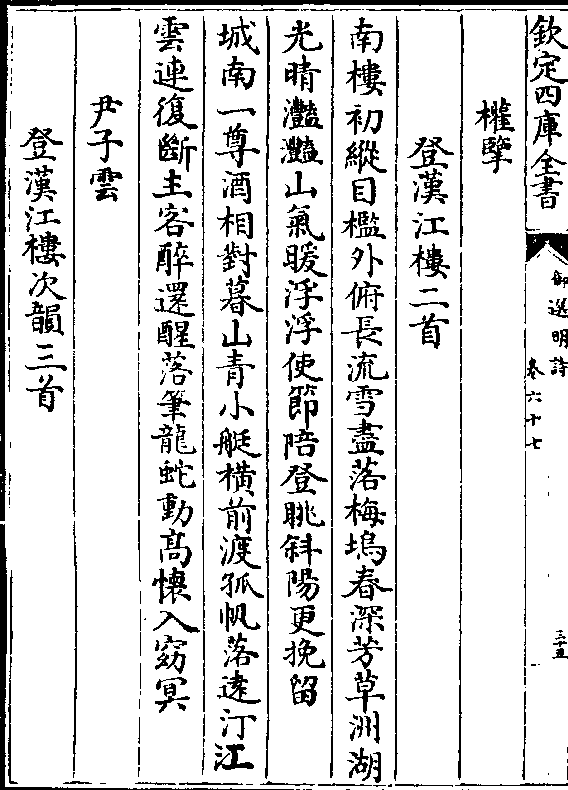 欽定四庫全書
御選明詩
卷六十七
三十五
權擥
登漢江樓二首
南樓初縱目檻外俯長流雪盡落梅塢春深芳草洲湖
光晴灩灩山氣暖浮浮使節陪登眺斜陽更挽留
城南一尊酒相對暮山青小艇橫前渡孤帆落遠汀江
雲連復斷主客醉還醒落筆龍蛇動高懷入窈冥
尹子雲
登漢江樓次韻三首